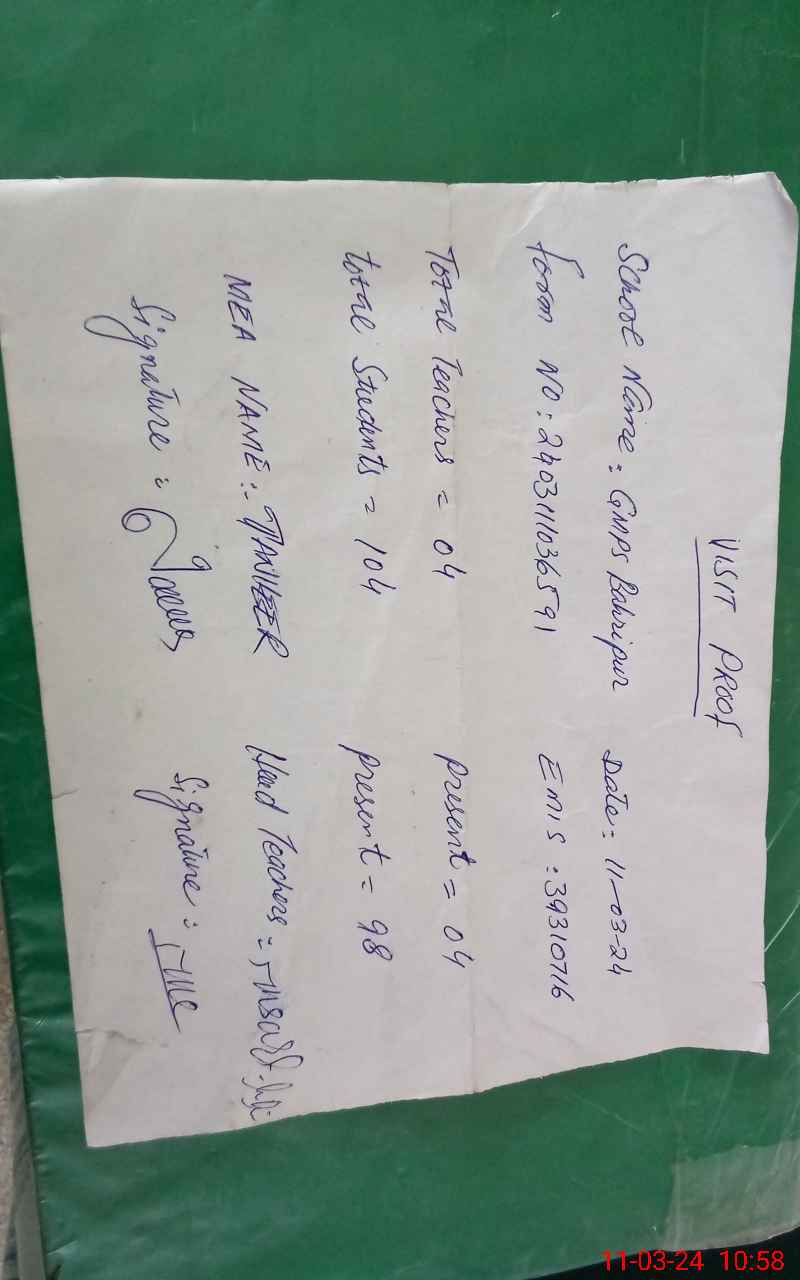 VISIT PROOF
School Name: GMPS Bahripur Date: 11-03-24
form NO: 240311036591 EMIS: 39310716
Total Teachers = 04 present = 04
total Students = 104 present = 98
MEA NAME: TANVEER Head Teachers =
Signature: Signature:
11-03-24 10:58